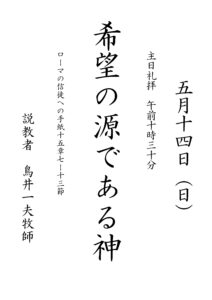 五月十四日（日）
主日礼拝　午前十時三十分
希望の源である神
ローマの信徒への手紙十五章七ー十三節
説教者　鳥井一夫牧師